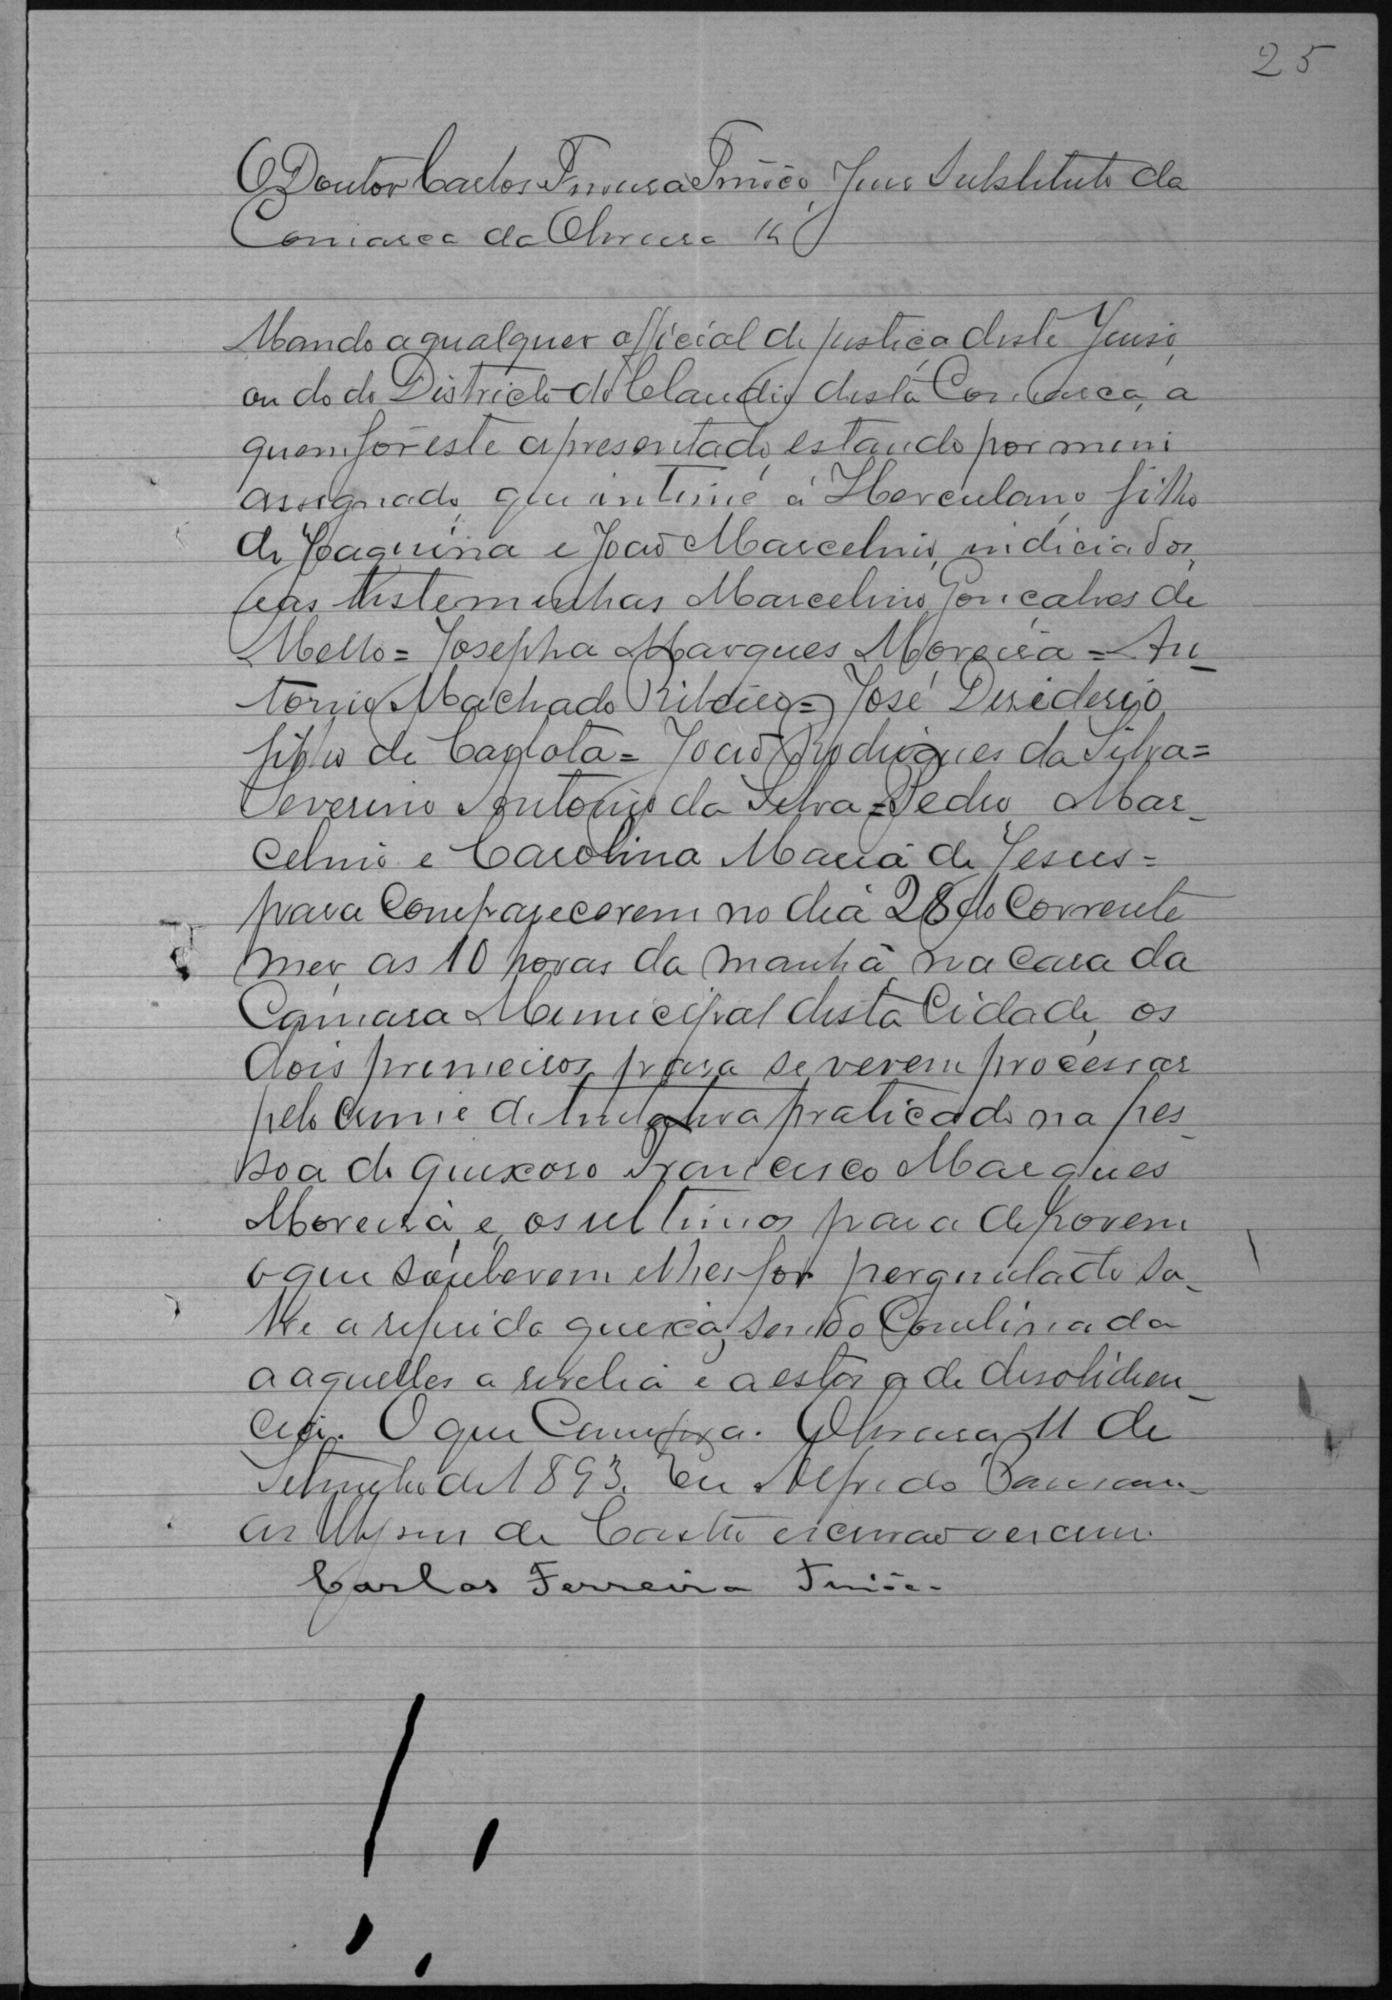 25
O Doutor Carlos Ferreira Tinôco, Juis Substituto da
Comarca da Oliveira
Mando a qualquer official de justiça deste Juiso,
ou do do Districto do Claudio desta Comarca, a
quem fôr este apresentado, estando por mim
assignado, que intime á Herculano, filho
de Joaquina e João Marcelino, indiciados,
e as testemunhas Marcelino Gonçalves de
Mello = Josepha Marques Moreira = An_
tonio Machado Ribeiro = José Desiderio,
filho de Carlota = João Rodrigues da Silva =
Severino Antonio da Silva = Pedro Mar_
celino e Carolina Maria de Jesus =
para comparecerem no dia 28 do corrente
mez, as 10 horas da manhã, na casa da
Camara Municipal desta Cidade, os
dois primeiros, para se verem processar
pelo crime de tentativa praticado na pes_
soa do queixoso Francisco Marques
Moreira, e, os ultimos para deporem
o que souberem e lhes for perguntado so_
bre a referida queixa, sendo Comlinada
a aquelles a revelia e a estes a de desobidien_
cia. O que Cumpra. Oliveira 11 de
Setembro de 1893. Eu Alfredo
de Castro escrivão o escrevi.
Carlos Ferreira Tinôco